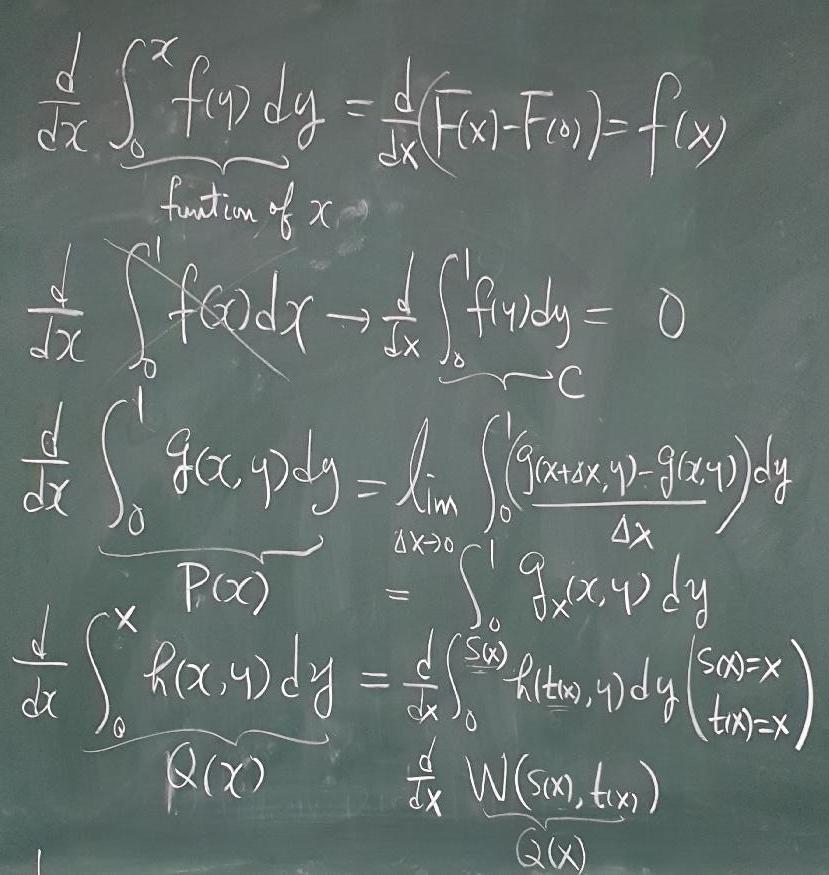 d/dx ∫₀ˣ f(y) dy = d/dx (F(x)-F(0)) = f(x)
function of x
d/dx ∫₀¹ f(x) dx → d/dx ∫₀¹ f(y) dy = 0
C
d/dx ∫₀¹ g(x, y) dy = lim Δx→0 ∫₀¹ (g(x+Δx, y) - g(x, y) / Δx) dy
P(x) = ∫₀¹ gₓ(x, y) dy
d/dx ∫₀ˣ h(x, y) dy = d/dx ∫₀^S(x) h(t(x), y) dy (S(x)=x t(x)=x)
Q(x) d/dx W(S(x), t(x))
Q(x)